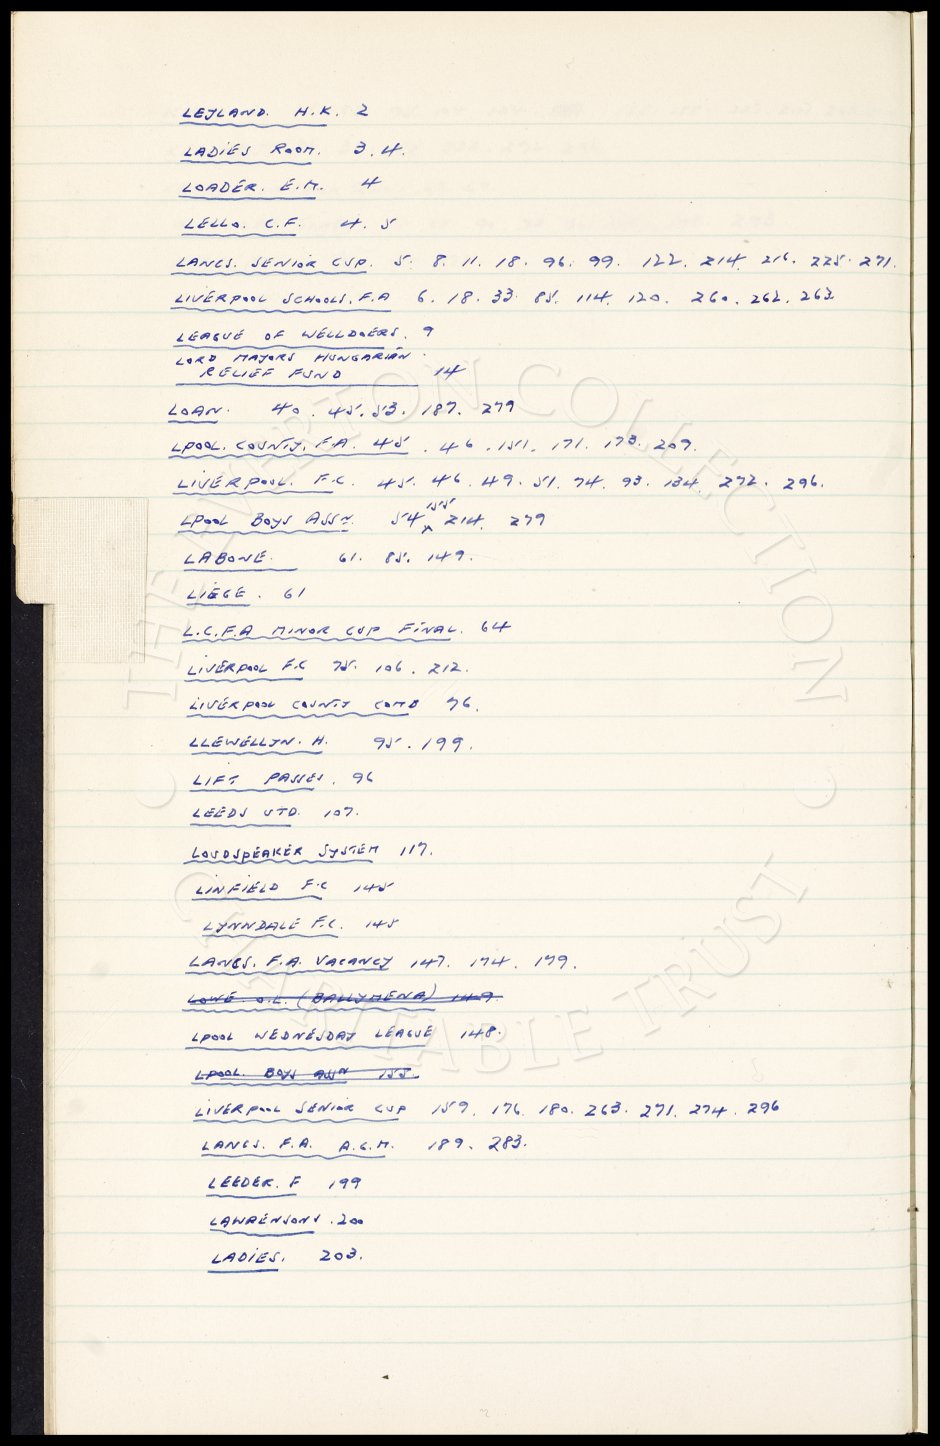 LEYLAND. H.K. 2
LADIES ROOM. 3. 4.
LOADER. E.M. 4
LELLO. C.F. 4. 5
LANCS. SENIOR CUP. 5. 8. 11. 18. 96. 99. 122. 214. 216. 225. 271.
LIVERPOOL SCHOOLS. F.A 6. 18. 33. 85. 114. 120. 260. 262. 263.
LEAGUE OF WELLDOERS. 9
LORD MAYORS HUNGARIAN
RELIEF FUND 14
LOAN. 40. 45. 53. 187. 279
LPOOL. COUNTY. F.A. 45. 46. 151. 171. 173. 209.
LIVERPOOL. F.C. 45. 46. 49. 51. 74. 93. 134. 272. 296.
LPOOL BOYS ASSN. 54 155 214. 279
LABONE. 61. 85. 149.
LIEGE. 61
L.C.F.A MINOR CUP FINAL. 64
LIVERPOOL F.C 75. 106. 212.
LIVERPOOL COUNTY COMB 76.
LLEWELLYN. H. 95. 199.
LIFT PASSES. 96
LEEDS UTD. 107.
LOUDSPEAKER SYSTEM 117.
LINFIELD F.C 145
LYNNDALE F.C. 145
LANCS. F.A. VACANCY 147. 174. 179.
LOWE O.L. (BALLYMENA) 149.
LPOOL WEDNESDAY LEAGUE 148.
LPOOL. BOYS ASSN 155.
LIVERPOOL SENIOR CUP 159. 176. 180. 263. 271. 274. 296
LANCS. F.A. A.G.M. 189. 283.
LEEDER. F 199
LAWRENSONS. 200
LADIES. 203.
THE EVERTON COLLECTION
CHARITABLE TRUST